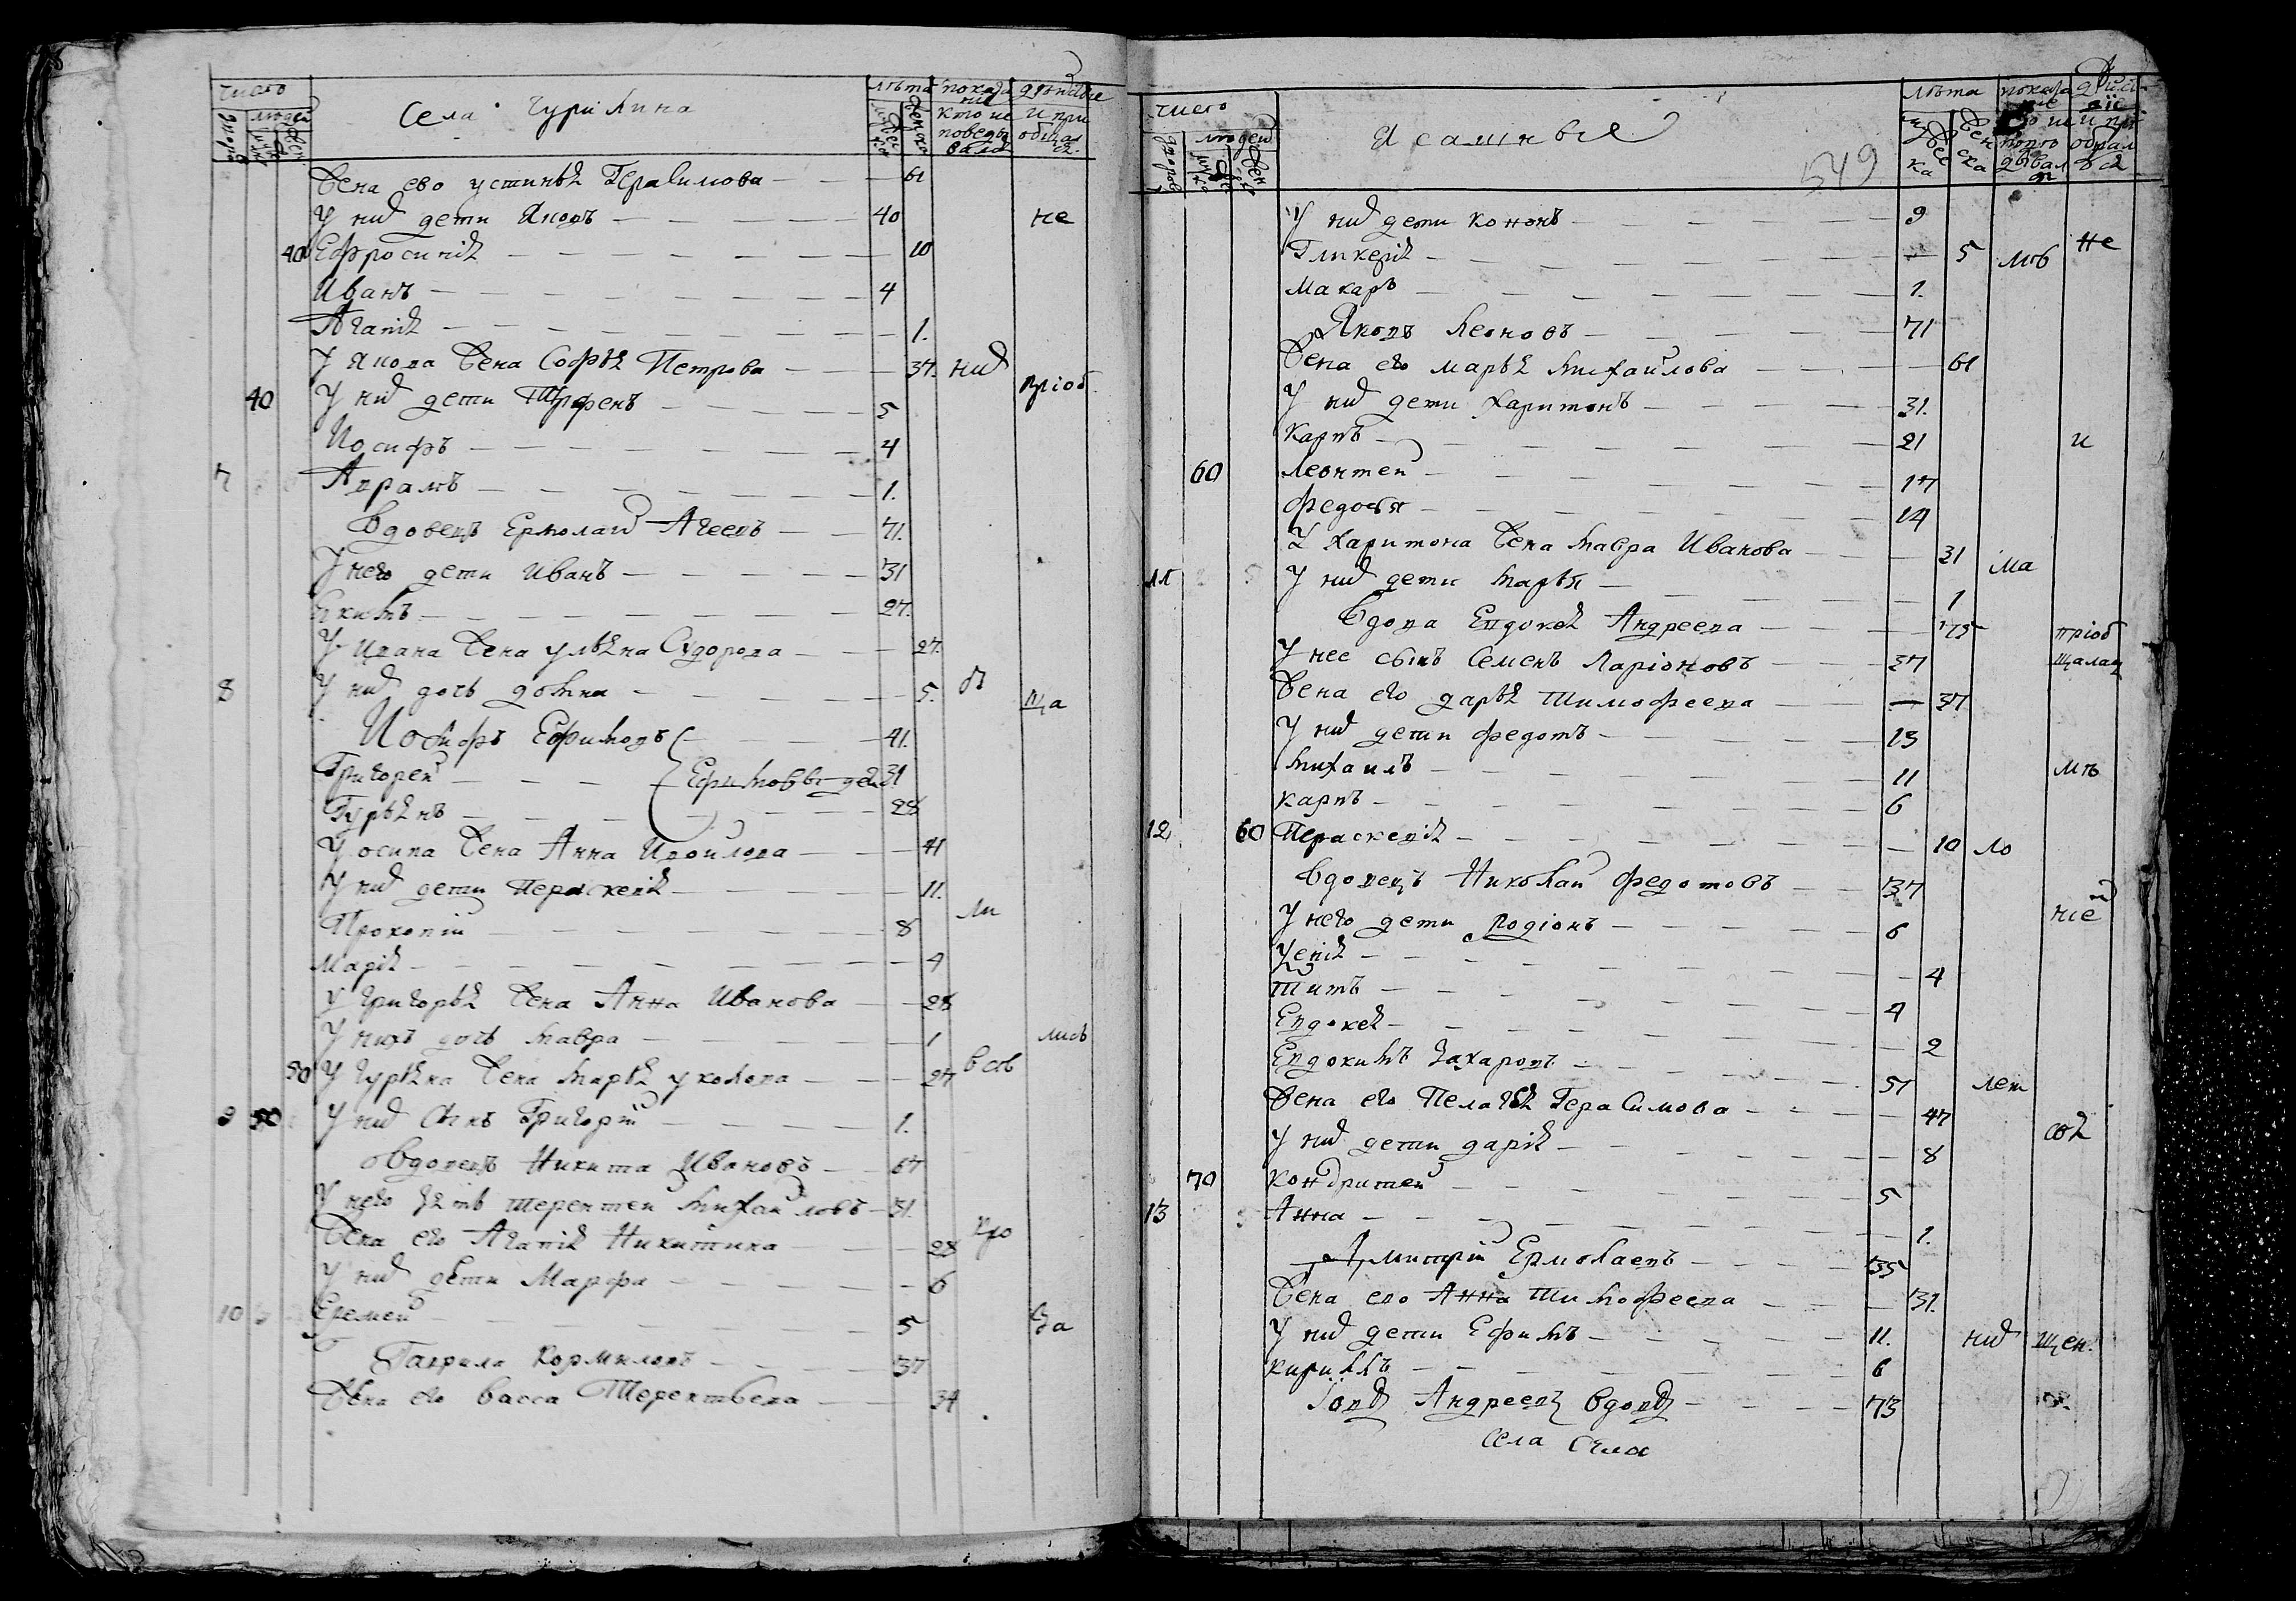 число
Села Чурилина
лѣта
дворо
людей
муж
жен
женска
кто ис
поведы
вался
и при
общал
ся
Жена ево устинья Герасимова 61
У них дети Яковъ 40 не
40 Ефросиния 10
Иванъ 4
Агапия 1.
У Якова жена Софья Петрова 37. них
40 У них дети Трофенъ 5 пріоб
Иосифъ 4
7 Аврамъ 1.
Вдовецъ Ермолай Агеевъ 71.
У него дети Иванъ 31
27.
У Ивана жена ульяна Сидорова 27.
8 У них дочь домна 5. ща
Иосифъ Ефимовъ 41.
Григорей Ефимовы дети 31
Гурьянъ 28
У осипа жена Анна Самойлова 41
У них дети Пераскевия 11. ли
Прокопий 8
Мария 4
У Григорья жена Анна Иванова 28
У нихъ дочь Мавра 1 лись
50 У Гурьяна жена Марья 27
9 50 У них сынъ Григорий 1.
Вдовецъ Никита Ивановъ 67
У него зять Терентей Михайловъ 31.
Жена его Агапия Никитина 28
У них дети Марфа 6
10 Еремей 5 за
Гаврила Кормиловъ 37
Жена его Васса Терентьева 34
число
Исашные
549
лѣта
дворов
людей
У них дети Кононъ 9
Гликерия 5 не
Макаръ 1.
Яковъ Леоновъ 71
Жена его Марья Михайлова 61
У них дети Харитонъ 31.
Карпъ 21 и
60 Леонтей 17
Федосья 14
У Харитона жена Мавра Иванова 31 ма
11 У них дети Марья 1
Вдова Евдокея Андреева 75 пріоб
У нее сынъ Семенъ Ларіоновъ 37 щалац
Жена его дарья Тимофеева 37
У них дети Федотъ 13
Михаилъ 11
Карпъ 6
12 60 Пераскевия 10 ло
Вдовецъ Николай Федотовъ 37
У него дети родіонъ 6 ніе
4
Титъ 4
Евдокея 2
Евдокимъ Захаровъ 51 лет
Жена его Пелагея Герасимова 47
У них дети дария 8
70 Кондратей 5
13 Анна 1.
Дмитрий Ермолаевъ 35
Жена ево Анна Тимофеева 31.
У них дети Ефимъ 11. них щен.
Кирилъ 6
Андреевъ вдовъ 73
села